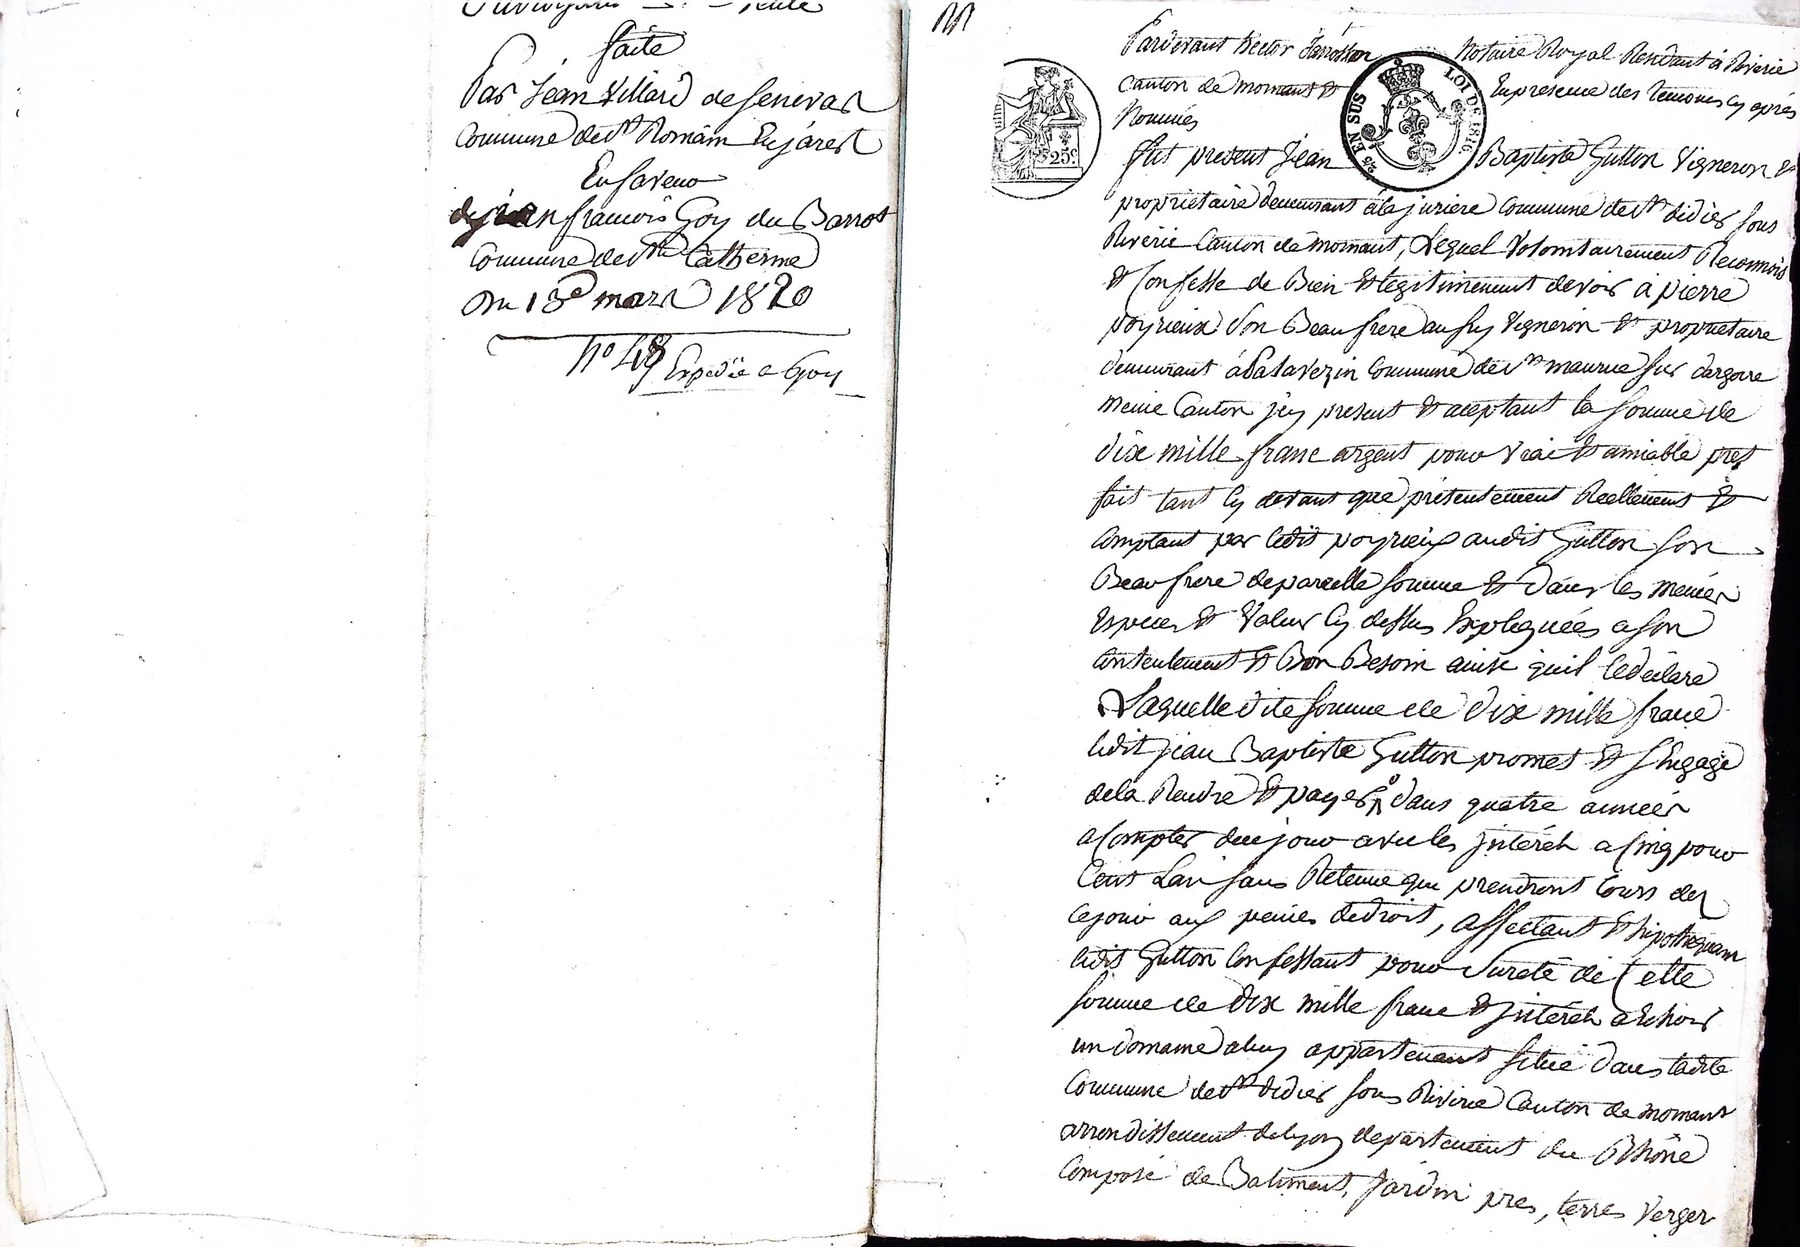 faite
Par Jean Villard de Senevas
Commune de St Romain En jarest
En faveur
de jean francois Goy du Barrot
Commune de Ste Catherine
Du 13e mars 1820
No 48 Expediée a Goy
Pardevant hector Notaire Royal Residant à Riverie
Canton de mornant & En presence des temoins cy aprés
Nommés
fut present Jean Baptiste Gutton Vigneron &
proprietaire demeurant á la juriere Commune de St didier sous
Riverie Canton de mornant, Lequel Volontairement Reconnois
& Confesse de Bien & légitimement devoir à pierre
poyrieux son Beau frere aussy Vigneron & proprietaire
demeurant á Palavezin Commune de St maurice sur dargoire
meme Canton jcy present & aceptant la somme de
dix mille franc argent pour vrai & amiable pret
fait tant cy devant que présentement Reellement &
Comptant par ledit poyrieux audit Gutton son
Beau frere de pareille somme & dans les memes
Especes & Valeur Cy dessus Expliquées a son
Contentement & Bon Besoin ainsi quil le déclare
Laquelle dite somme de dix mille franc
ledit jean Baptiste Gutton promet & sEngage
de la Rendre & payer dans quatre années
a Compter de ce jour avec les jntérêt a Cinq pour
Cent Lan sans Retenue qui prendront Cours des
ce jour aux peines de droit, affectant & hipothequant
ledit Gutton Confessant pour sureté de Cette
somme de dix mille franc & jntérêt a Echoir
un domaine a luy appartenant situé dans ladite
Commune de St didier sous Riverie Canton de mornant
arrondissement de lyon departement du Rhône
Composé de Batiment, Jardin pres, terres Verger
25c
25 EN SUS
LOI DE 1816